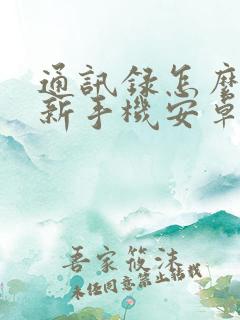 通訊録怎麼
新手機安卓
吾家筱沫
未经同意禁止转载